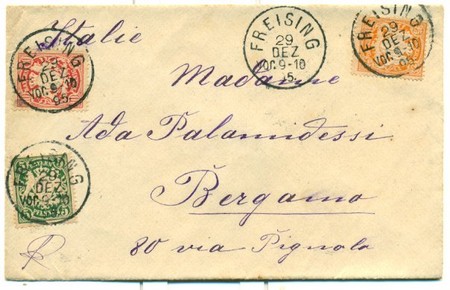 Italie
FREISING
29
DEZ
VOR.9-10
95
FREISING
29
DEZ
VOR.9-10
95.
FREISING
29
DEZ
VOR.9-10
95
Madame
Ada Palamidessi
FREISING
29
DEZ
VOR.9-10
Bergamo
80 via Pignolo